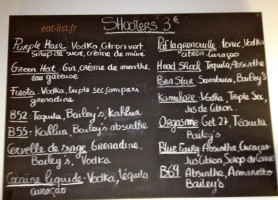 eat-list.fr
Shooters 3€
Purple Haze: Vodka, Citron vert
sirop de sucre, crème de mûre
Green Hat: Gin, crème de menthe,
eau gazeuse
Fiesta: Vodka, triple sec, campari
grenadine
B52: Tequila, Bailey's, Kahlua
B55: Kahlua, Bailey's absinthe
Cervelle de singe: Grenadine,
Bailey's, Vodka
Cocaïne liquide: Vodka, téquila
curaçao
Pif la grenouille: tonic, Vodka
citron, curaçao
Head Shock: Tequila, Absinthe
Sambuca, Bailey's
Kamikaze: Vodka, Triple Sec,
Jus de Citron.
Orgasme: Get 27, Téquila
Bailey's
Absinthe, Curaçao
Jus Citron, Sirop de Canne
B69 Absinthe, Amaretto
Bailey's